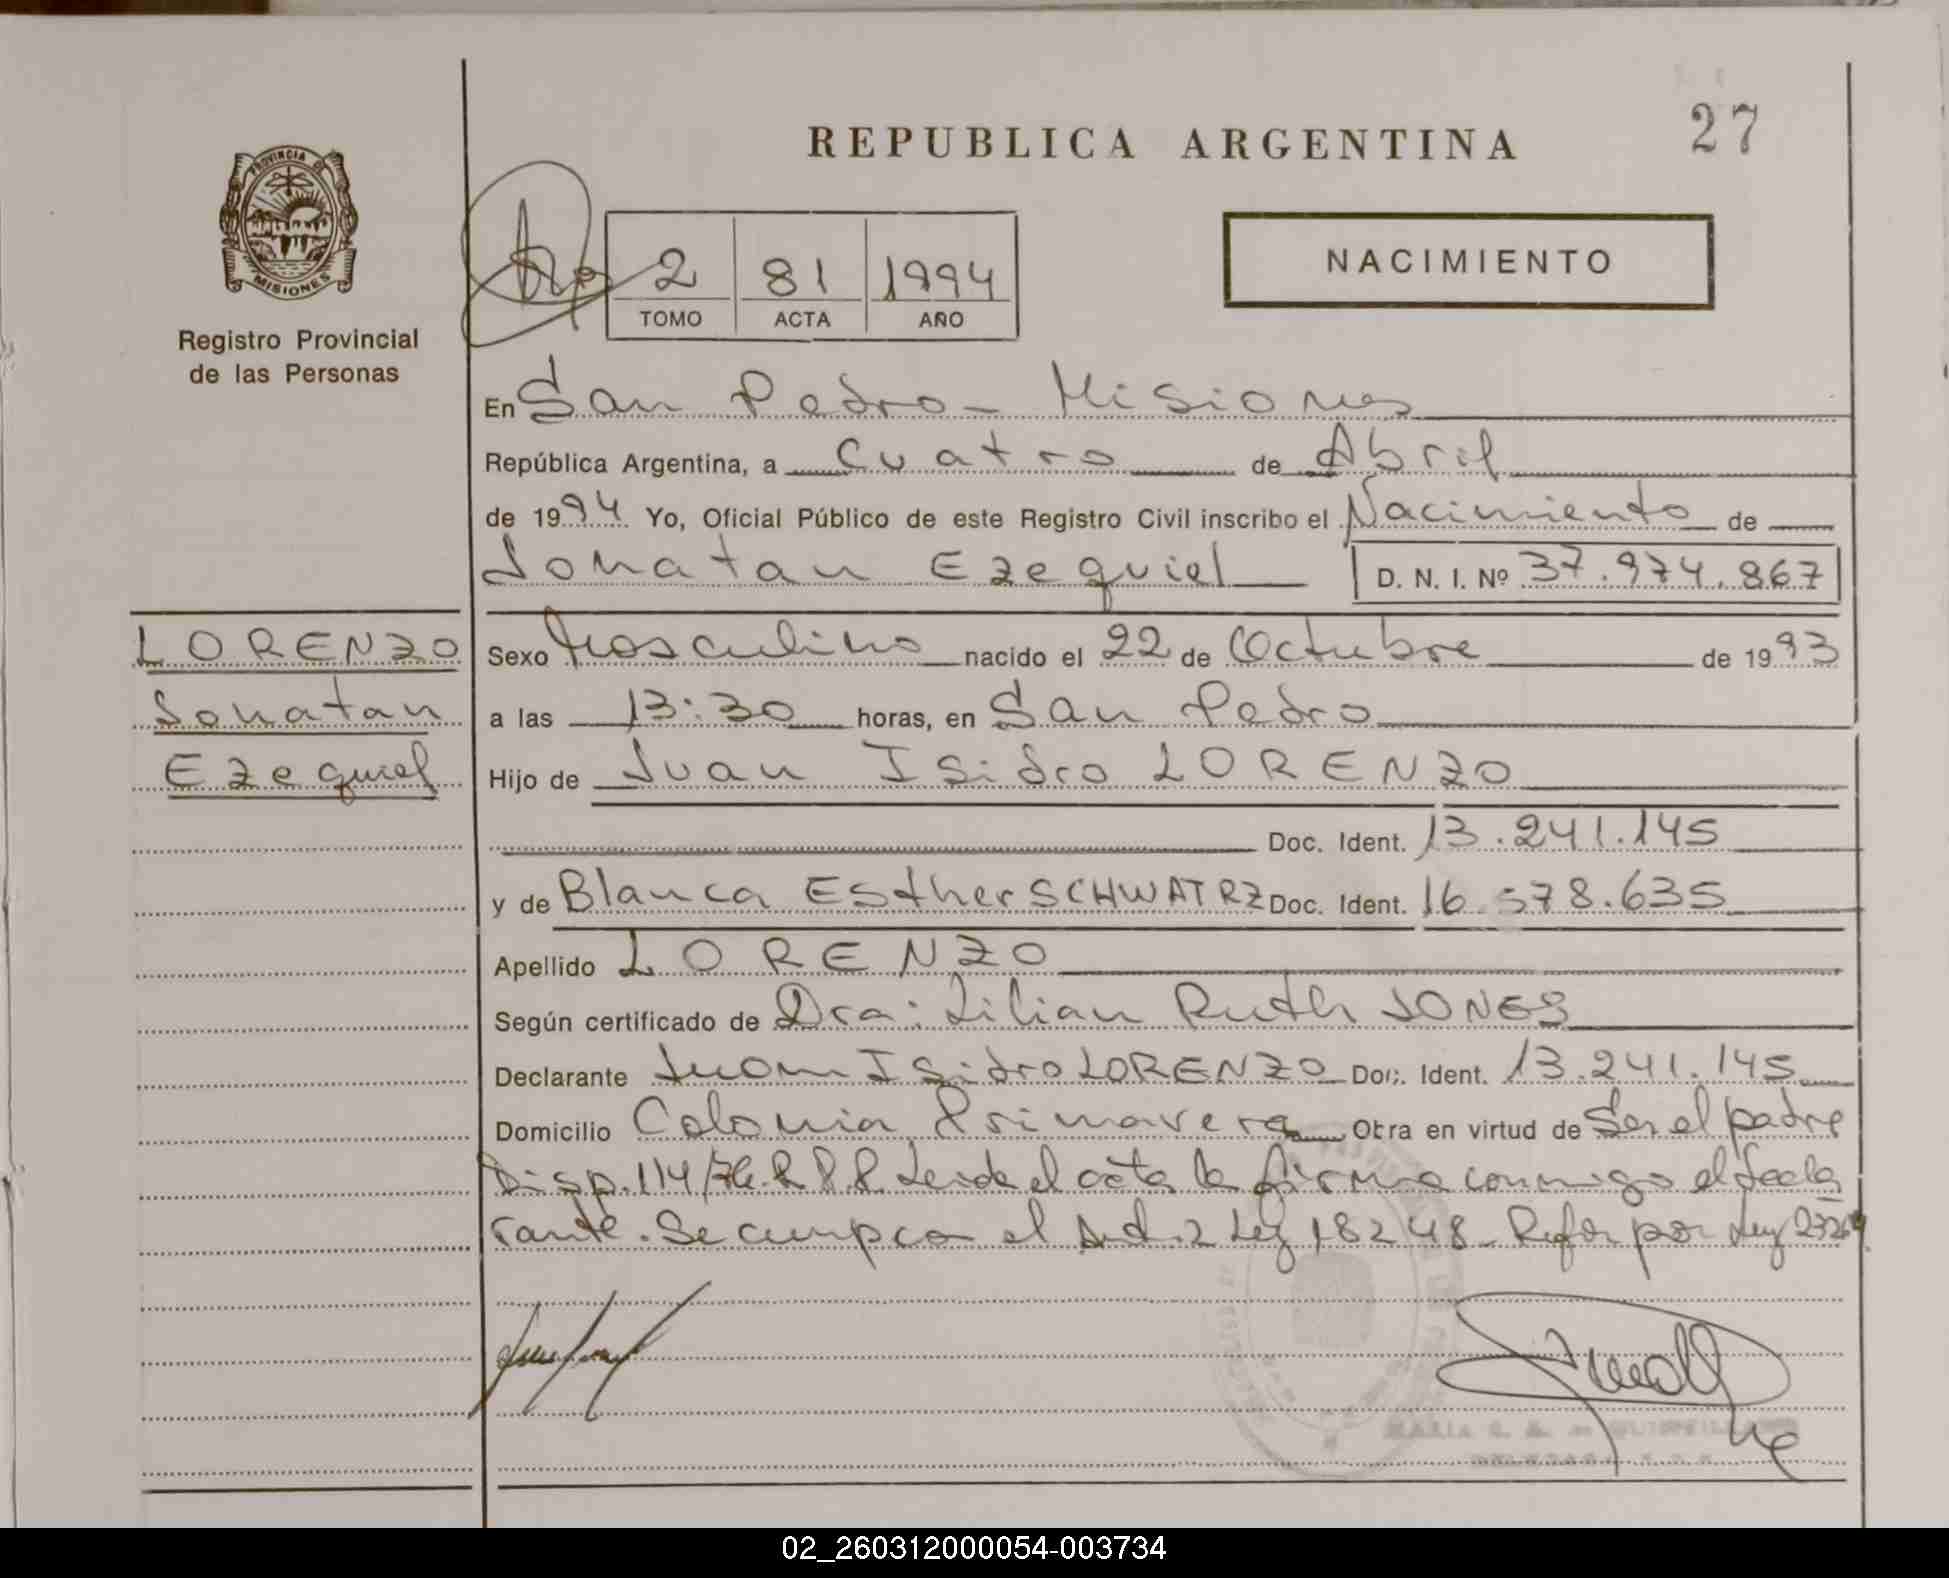 REPUBLICA ARGENTINA
27
PROVINCIA DE
MISIONES
Registro Provincial
de las Personas
2 81 1994
TOMO ACTA AÑO
NACIMIENTO
En San Pedro - Misiones
República Argentina, a cuatro de Abril
de 1994 Yo, Oficial Público de este Registro Civil inscribo el Nacimiento de
Jonatan Ezequiel D. N. I. Nº 37.974.867
LORENZO
Jonatan
Ezequiel
Sexo Masculino nacido el 22 de Octubre de 1993
a las 13:30 horas, en San Pedro
Hijo de Juan Isidro LORENZO
Doc. Ident. 13.241.145
y de Blanca Esther SCHWATRZ Doc. Ident. 16.578.635
Apellido LORENZO
Según certificado de Dra: Lilian Ruth JONES
Declarante Juan Isidro LORENZO Doc. Ident. 13.241.145
Domicilio Colonia Primavera Obra en virtud de Ser el padre
Disp. 114/76. R.P.P. Leida el acta la firma conmigo el decla
rante. Se cumpco el Art. 2 Ley 18248 - Refor por Ley 23264
02_260312000054-003734